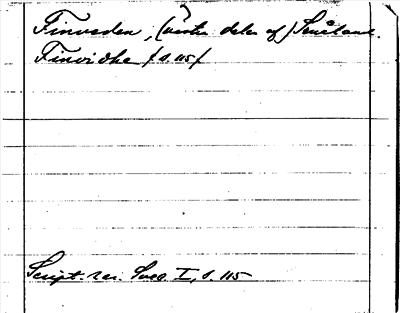 Finveden, (västra delen af) Småland.
Finvidhe (s. 115)
Script. rer. Svec. I, s. 115